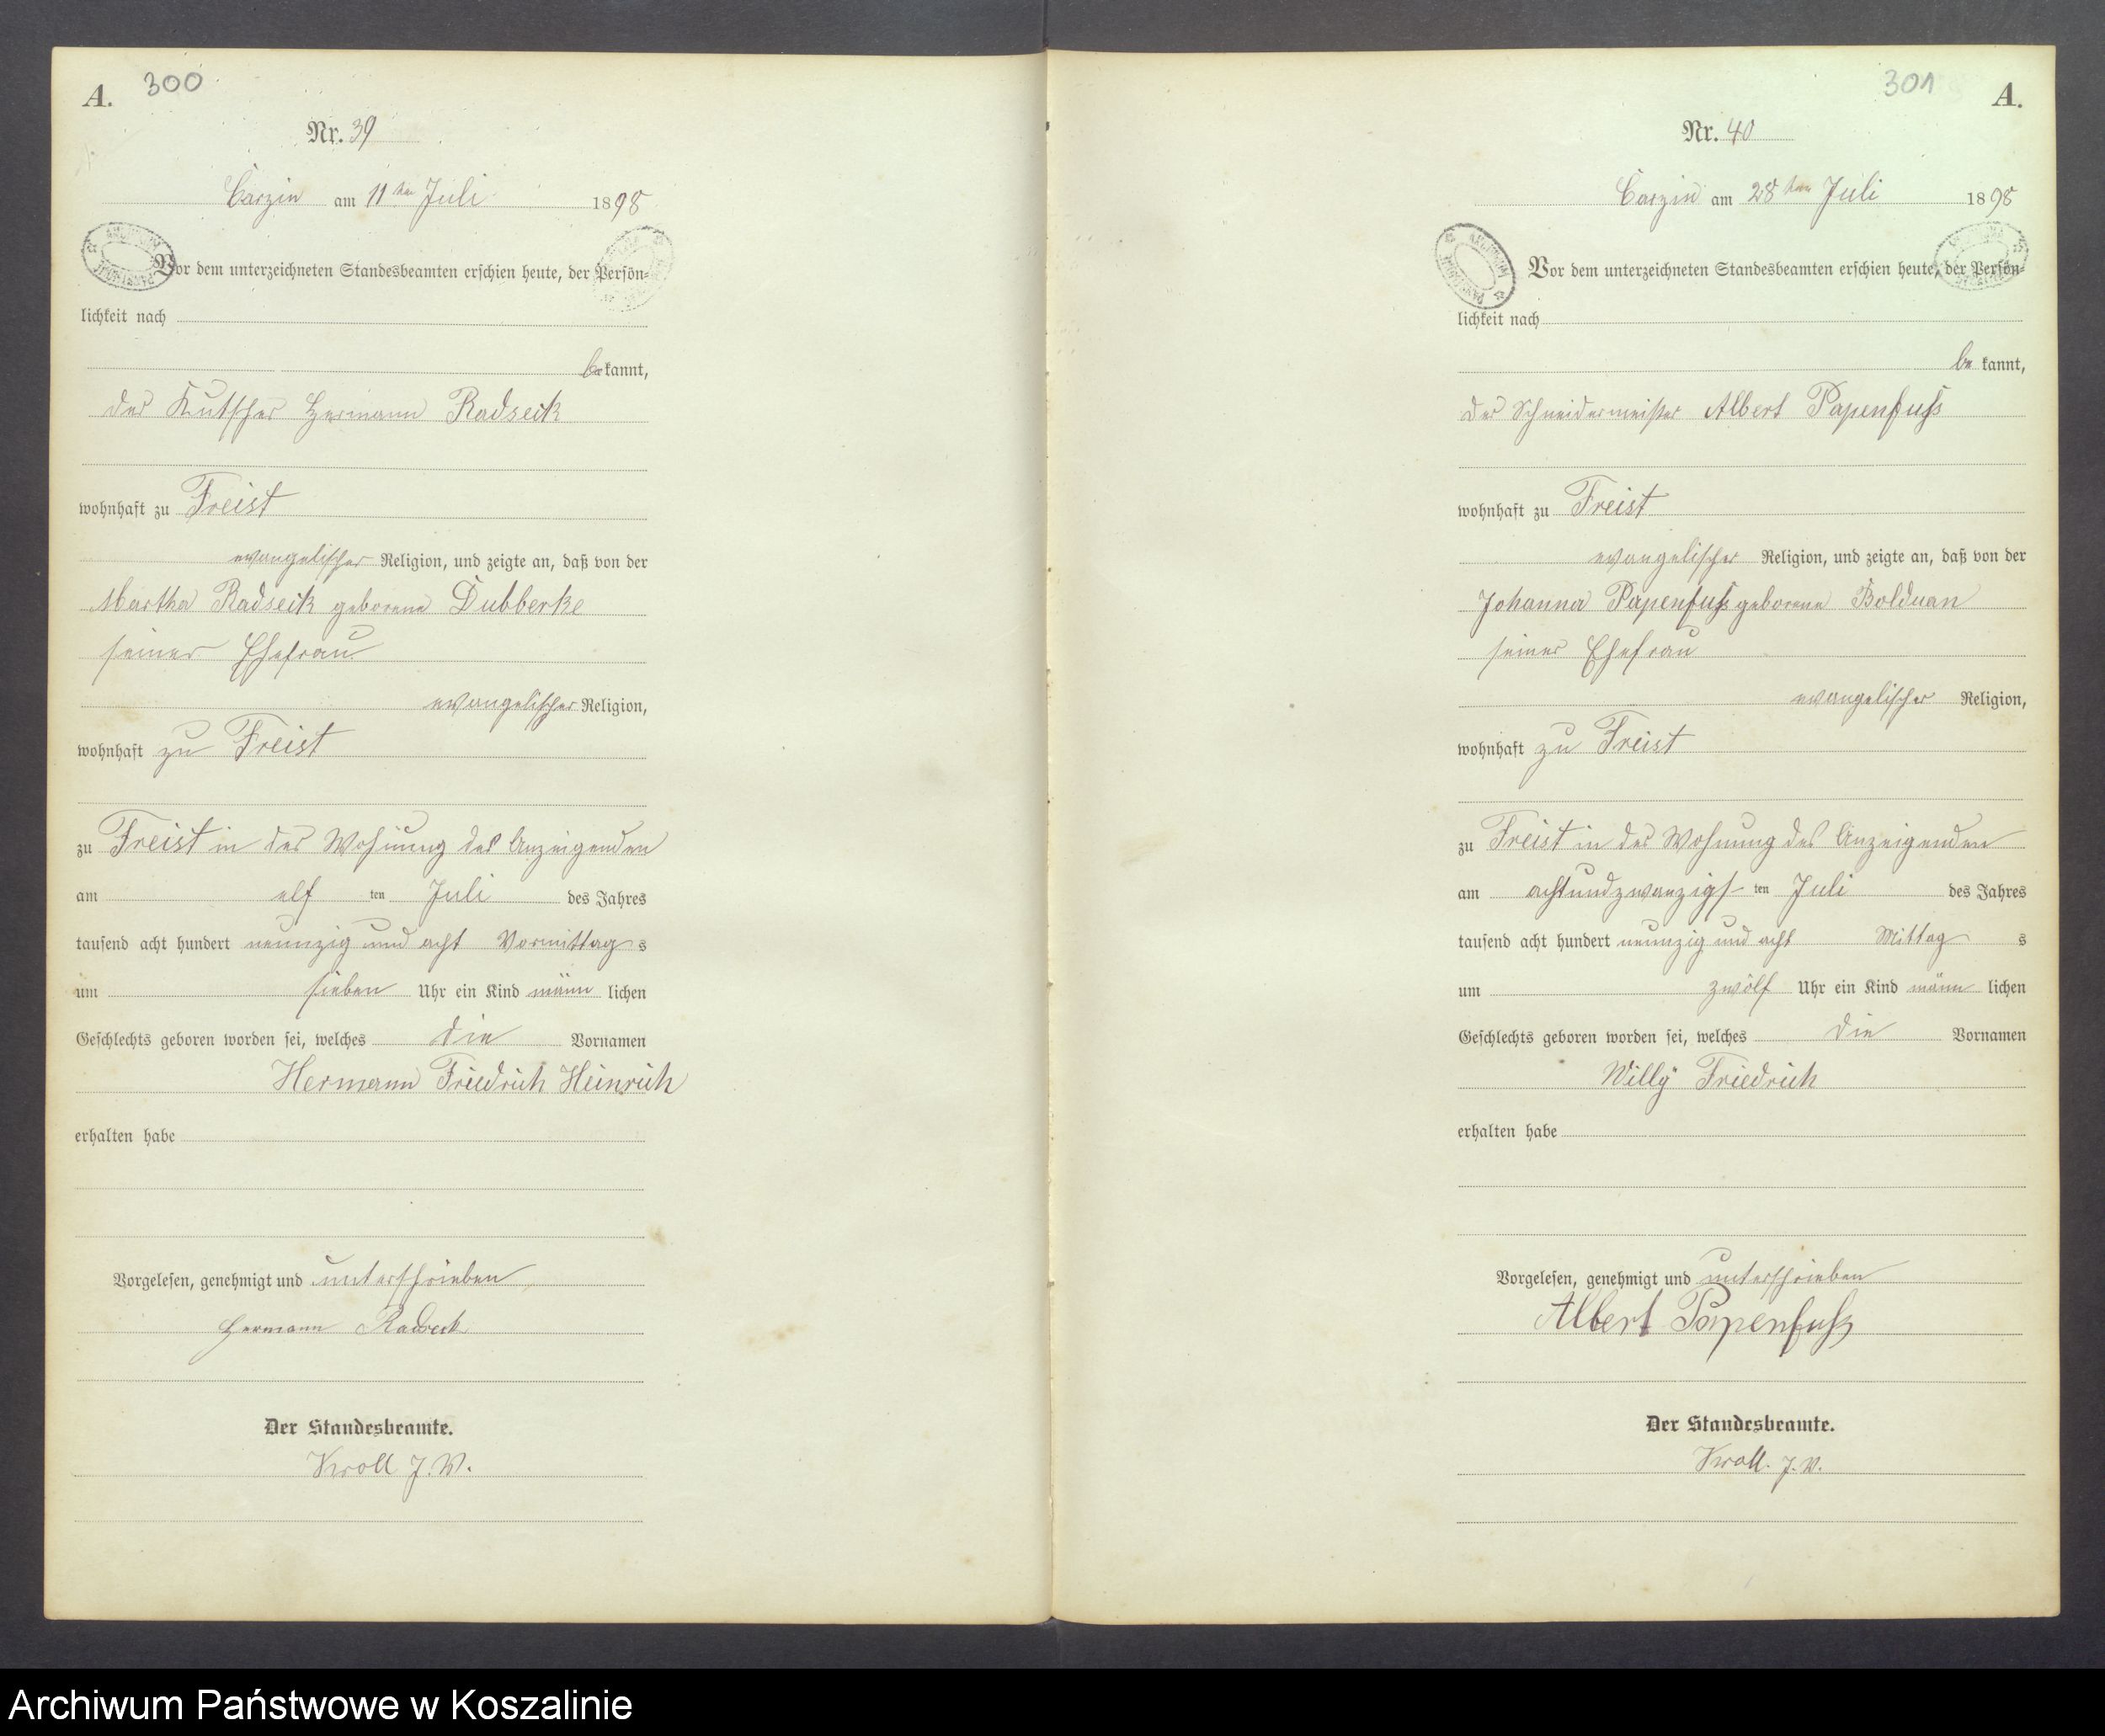 A. 300
Nr. 39
Carzin am 11ten Juli 1898
Vor dem unterzeichneten Standesbeamten erschien heute, der Persön-
lichkeit nach
bekannt,
der Kutscher Hermann Radseck
wohnhaft zu Freist
evangelischer Religion, und zeigte an, daß von der
Martha Radseck geborene Dubberke
seiner Ehefrau
evangelischer Religion,
wohnhaft zu Freist
zu Freist in der Wohnung des Anzeigenden
am elf ten Juli des Jahres
tausend acht hundert neunzig und acht Vormittags
um sieben Uhr ein Kind männlichen
Geschlechts geboren worden sei, welches die Vornamen
Hermann Friedrich Heinrich
erhalten habe
Vorgelesen, genehmigt und unterschrieben
Hermann Radseck
Der Standesbeamte.
Kroll J.V.
301 A.
Nr. 40
Carzin am 28ten Juli 1898
Vor dem unterzeichneten Standesbeamten erschien heute, der Persön-
lichkeit nach
bekannt,
der Schneidermeister Albert Papenfuß
wohnhaft zu Freist
evangelischer Religion, und zeigte an, daß von der
Johanna Papenfuß geborene Bolduan
seiner Ehefrau
evangelischer Religion,
wohnhaft zu Freist
zu Freist in der Wohnung des Anzeigenden
am achtundzwanzigsten Juli des Jahres
tausend acht hundert neunzig und acht Mittags
um zwölf Uhr ein Kind männlichen
Geschlechts geboren worden sei, welches die Vornamen
Willy Friedrich
erhalten habe
Vorgelesen, genehmigt und unterschrieben
Albert Papenfuß
Der Standesbeamte.
Kroll. J.V.
Archiwum Państwowe w Koszalinie